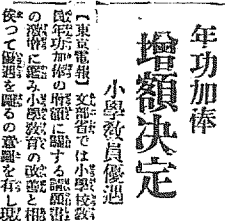 年功加俸
增額決定
小學敎員優遇
【東京電報】文部省では小學校敎
員年功加俸の增額に關する
の激增に鑑み小學敎育の改善と相
俟つて優遇を圖るの意羅を有し現